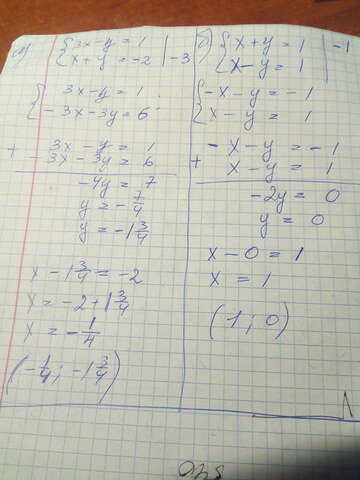 а) { 3x - y = 1
x + y = -2 | -3
{ 3x - y = 1
-3x - 3y = 6
+ 3x - y = 1
-3x - 3y = 6
-4y = 7
y = -7/4
y = -1 3/4
x - 1 3/4 = -2
x = -2 + 1 3/4
x = -1/4
(-1/4; -1 3/4)
б) { x + y = 1 | -1
x - y = 1
{ -x - y = -1
x - y = 1
+ -x - y = -1
x - y = 1
-2y = 0
y = 0
x - 0 = 1
x = 1
(1; 0)